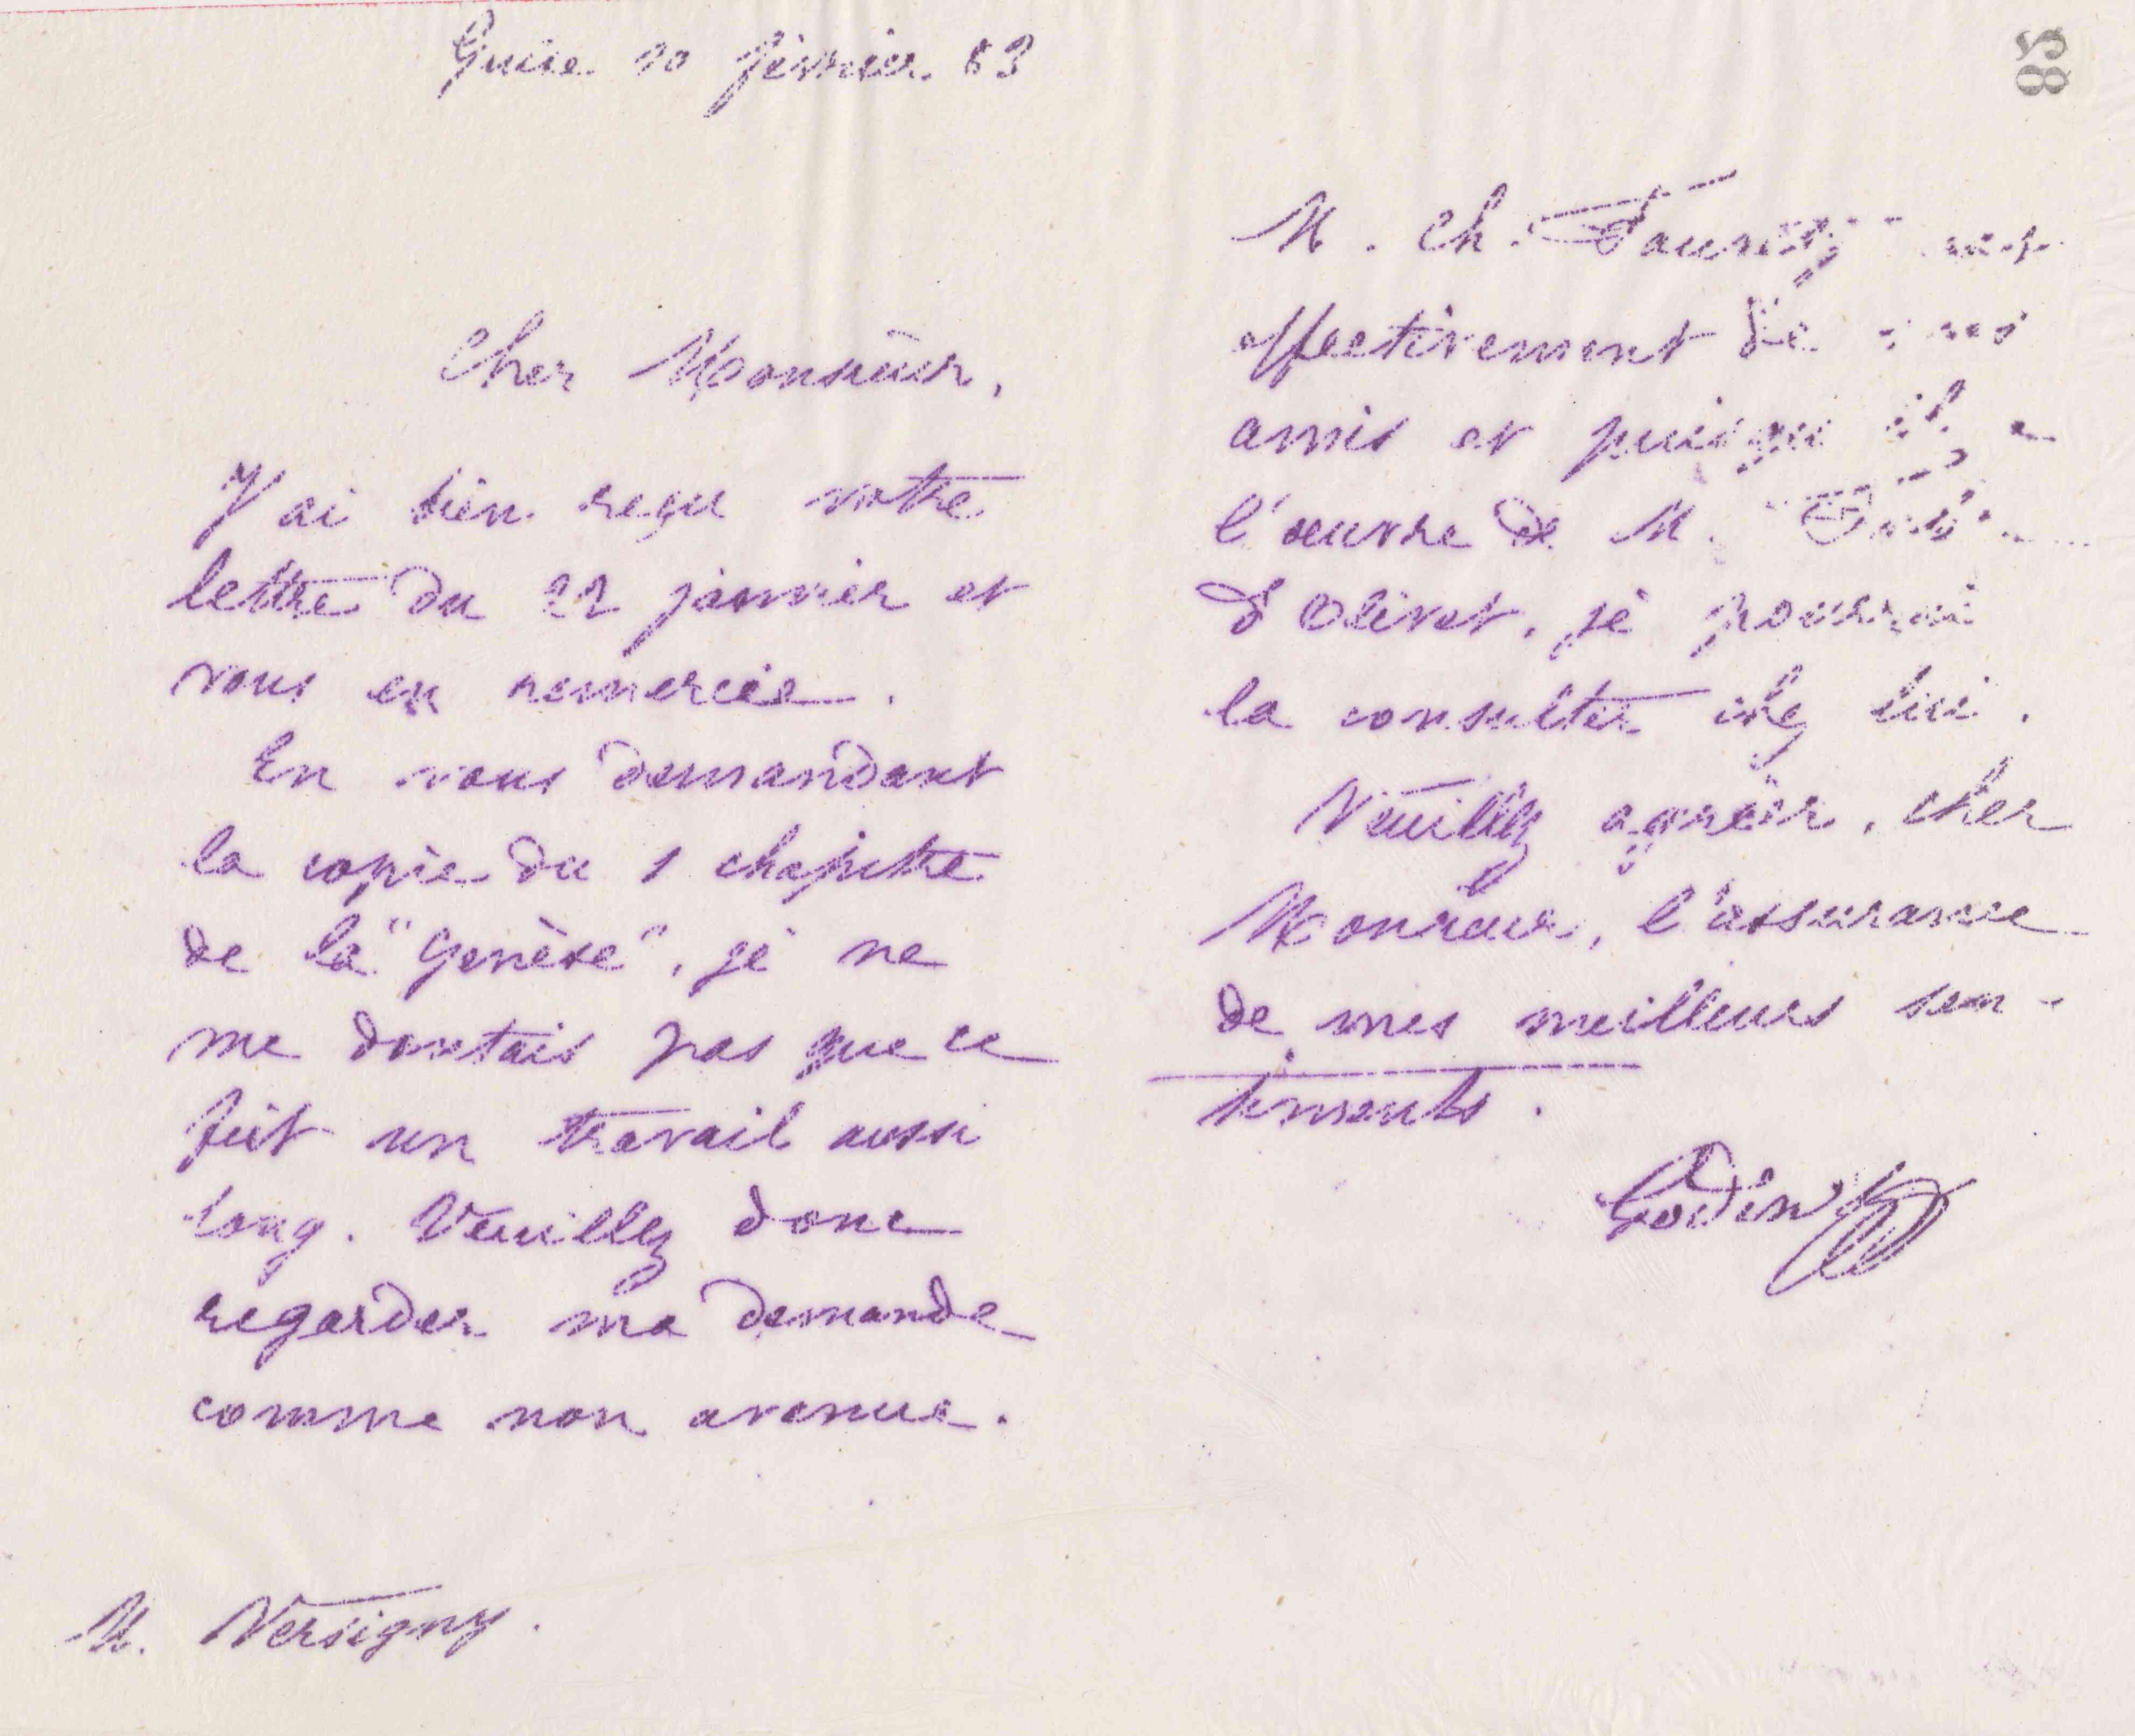 Guise 10 février 83
85
Cher Monsieur,
J'ai bien reçu votre
lettre du 22 janvier et
vous en remercie.
En vous demandant
la copie du 1 chapitre
de la "Genèse", je ne
me doutais pas que ce
fut un travail aussi
long. Veuillez donc
regarder ma demande
comme non avenue.
M. Versigny.
M. Ch. Fauvety est
effectivement de mes
amis et puisque il a
l'œuvre de M.
d'Olivet, je pourrai
la consulter chez lui.
Veuillez agréer, cher
Monsieur, l'assurance
de mes meilleurs sen-
timents.
Godin